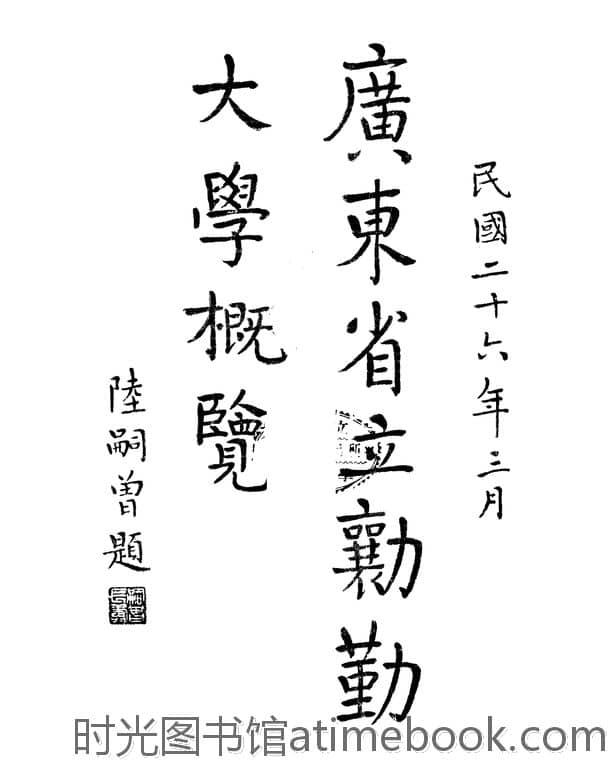 民國二十六年三月
廣東省立勷勤
大學概覽
陸嗣曾題
时光图书馆atimebook.com